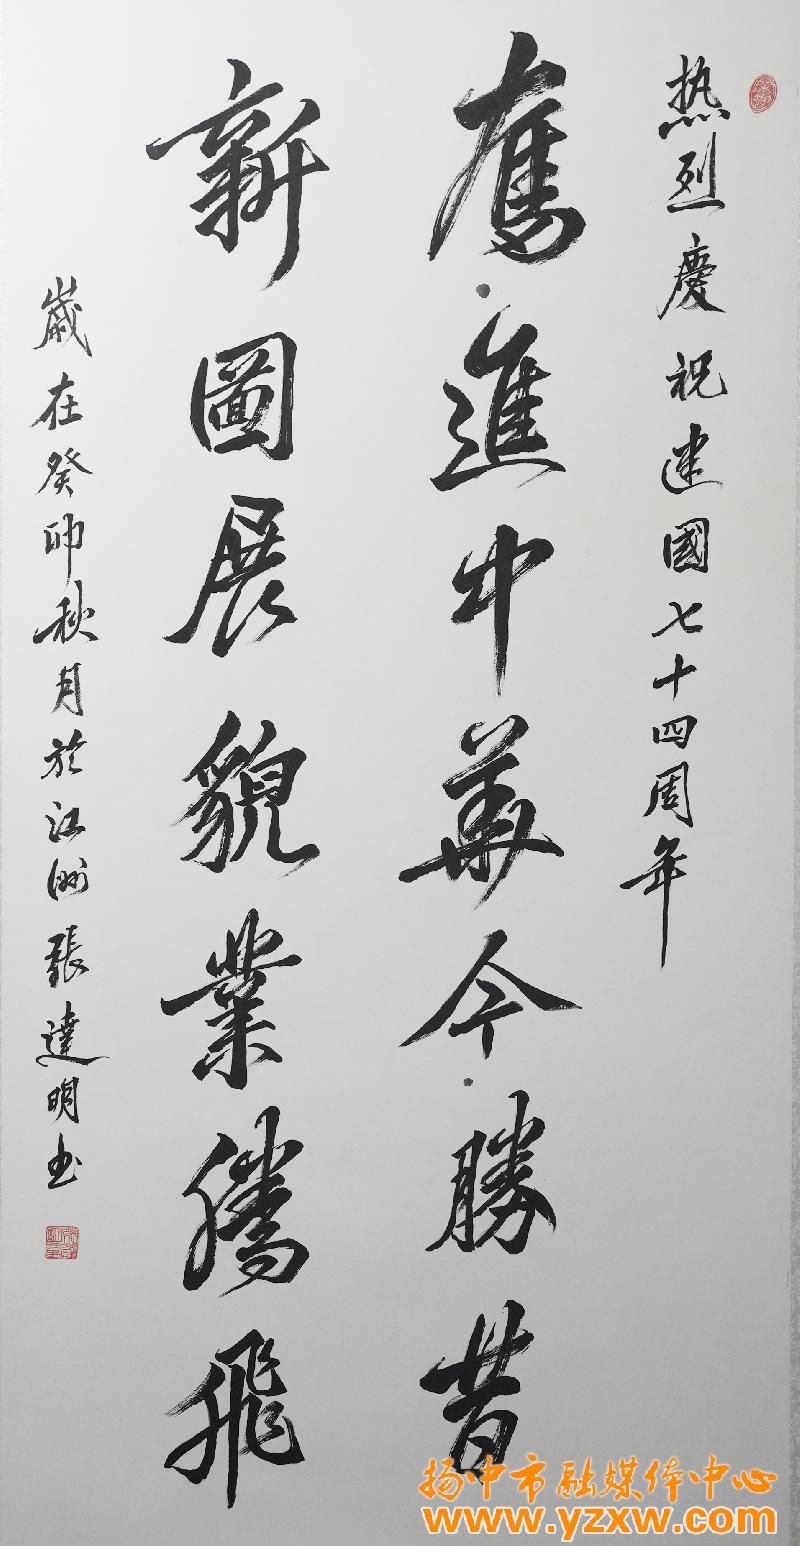 热烈慶祝建國七十四周年
奮進中華今勝昔
新圖展貌業騰飛
歲在癸卯秋月於江洲張達明书
扬中市融媒体中心
www.yzxw.com